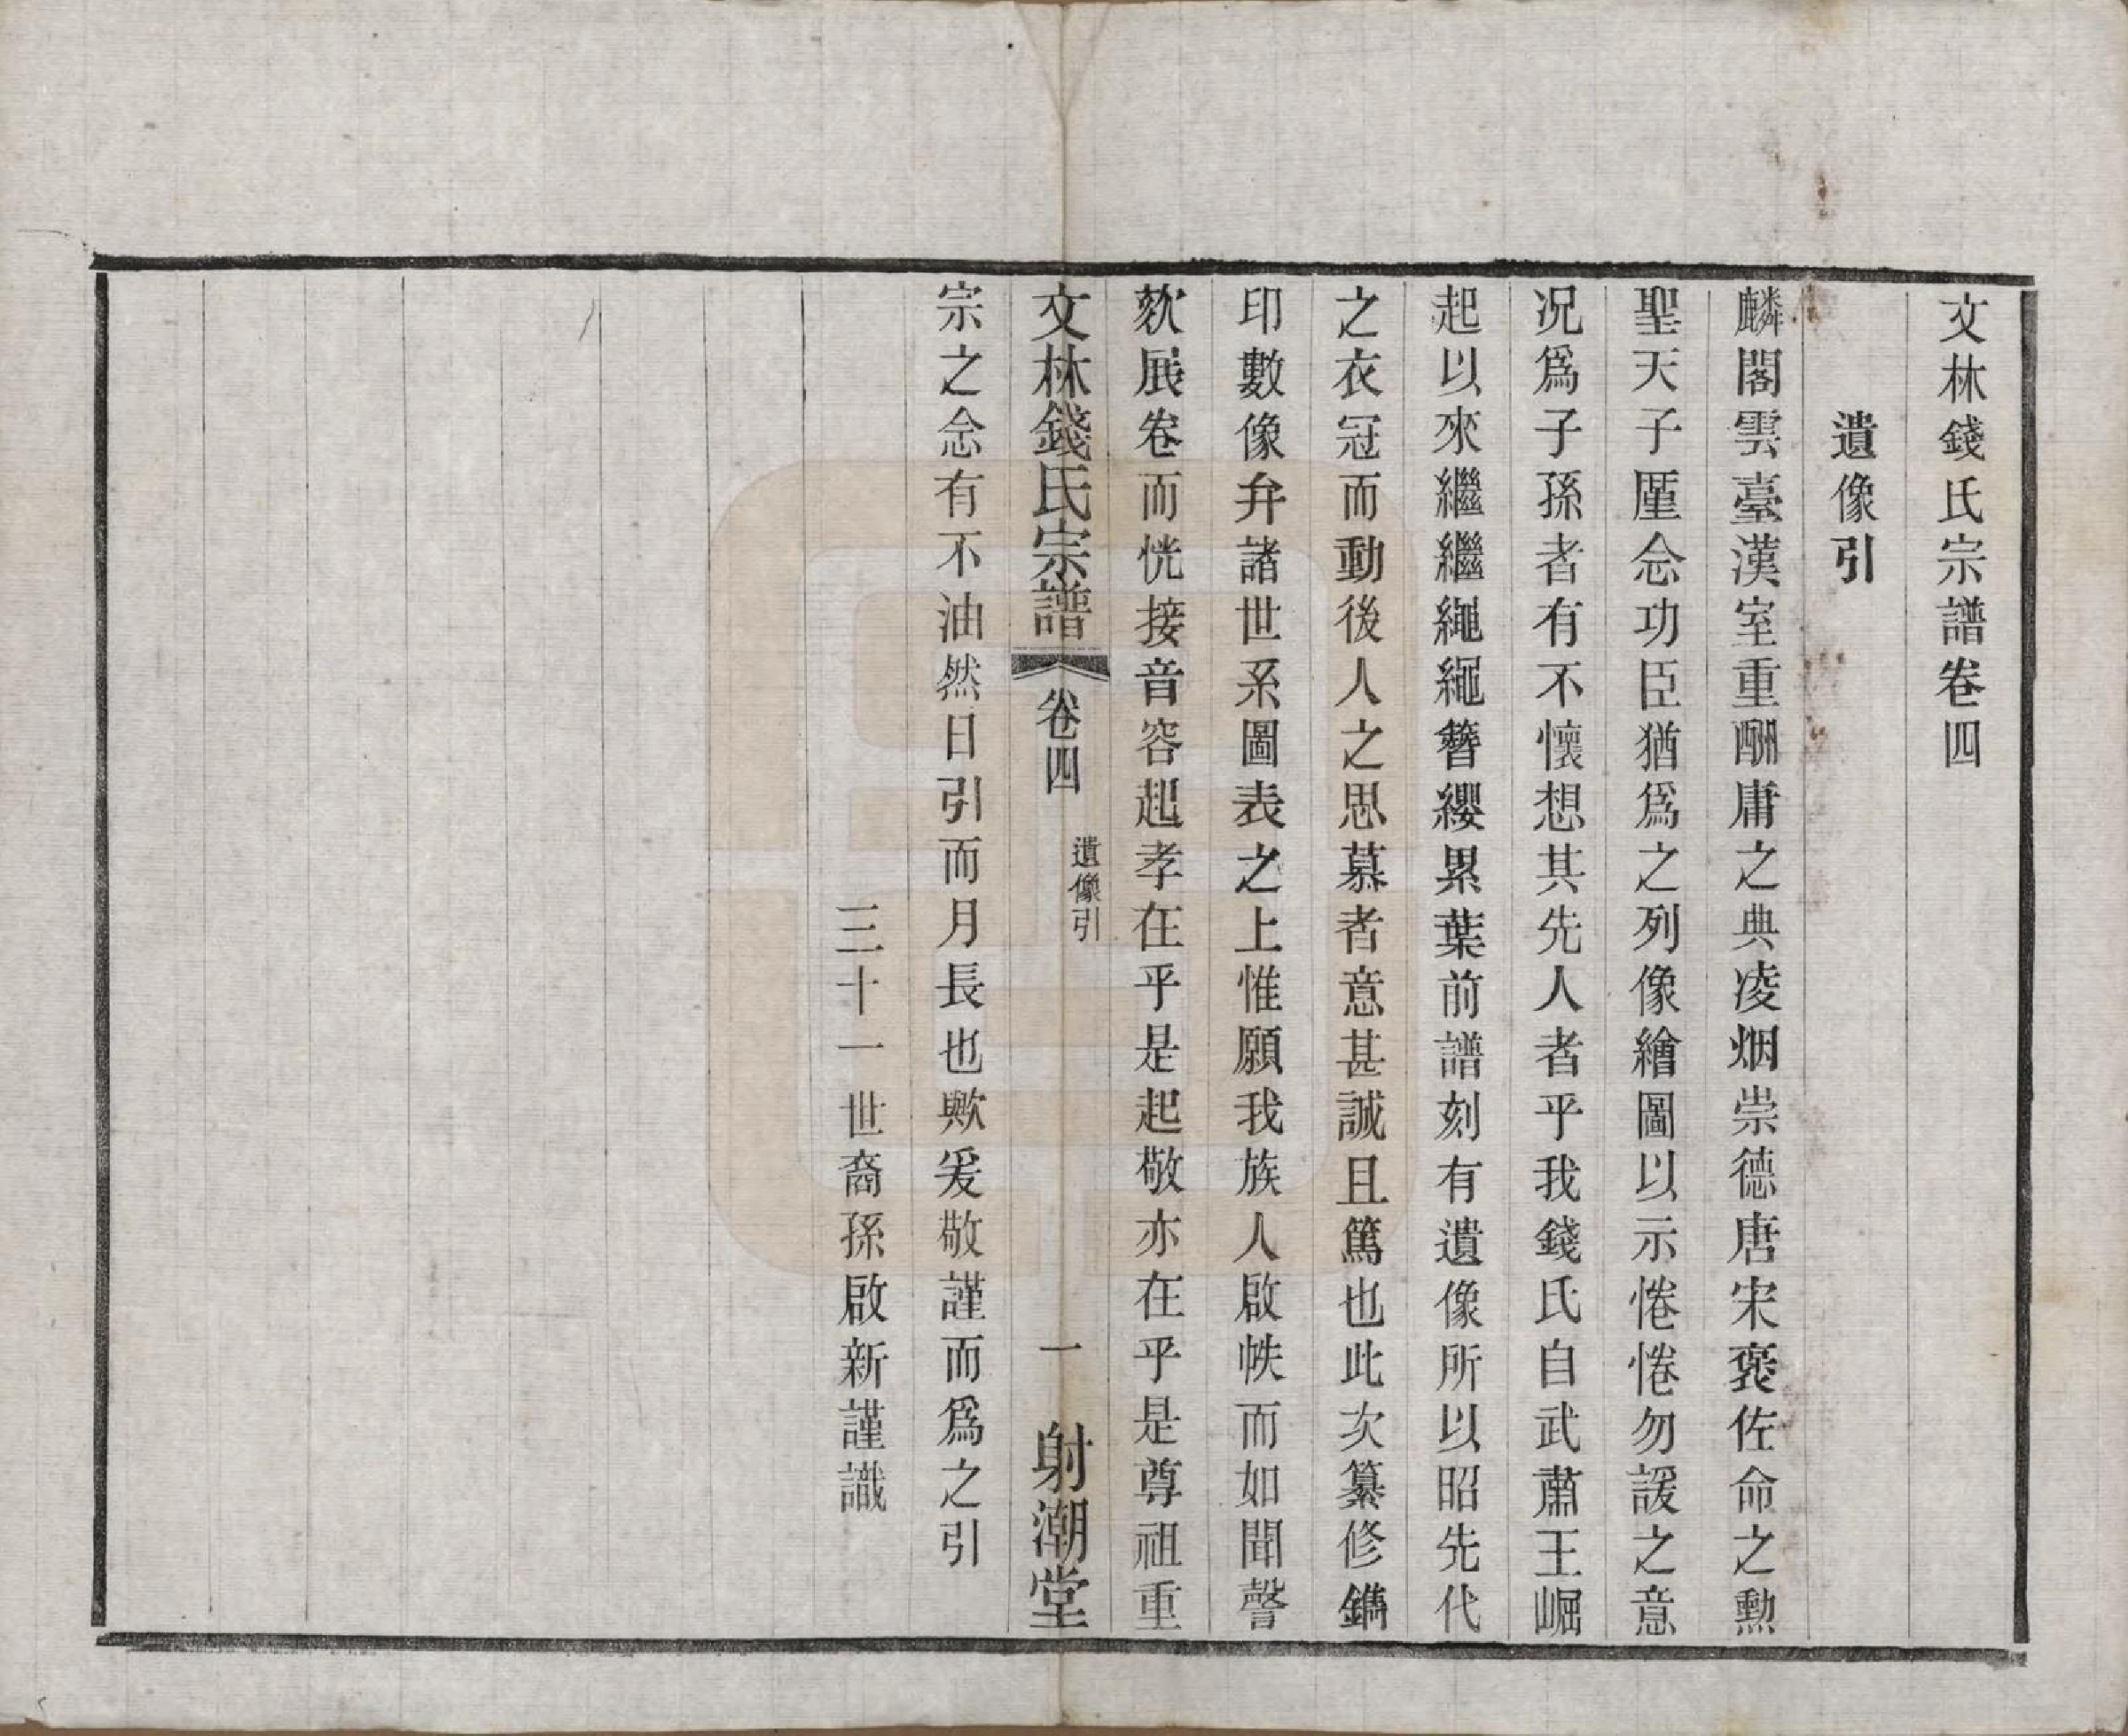 文林錢氏宗譜卷四
遺像引
麟閣雲臺漢室重酬庸之典凌烟崇德唐宋褒佐命之勳
聖天子厪念功臣猶爲之列像繪圖以示惓惓勿諼之意
况爲子孫者有不懷想其先人者乎我錢氏自武肅王崛
起以來繼繼繩繩簪纓累葉前譜刻有遺像所以昭先代
之衣冠而動後人之思慕者意甚誠且篤也此次纂修鐫
印數像弁諸世系圖表之上惟願我族人啟帙而如聞謦
欬展卷而恍接音容起孝在乎是起敬亦在乎是尊祖重
文林錢氏宗譜 卷四 遺像引 一 射潮堂
宗之念有不油然日引而月長也歟爰敬謹而爲之引
三十一世裔孫啟新謹識